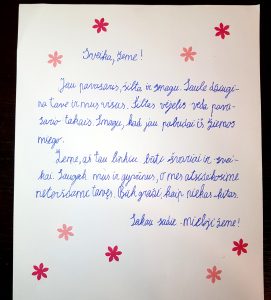 Sveika, Žeme!
Jau pavasaris, šilta ir smagu. Saulė džiugi-
na tave ir mus visus. Šiltas vėjelis veda pava-
sario takais. Smagu, kad jau pabudai iš žiemos
miego.
Žeme, aš tau linkiu būti švariai ir svei-
kai. Saugok mus ir gyvūnus, o mes atsidėkosime
neteršdami tavęs. Būk graži, kaip niekas kitas.
Sakau sudie - mieloji Žeme!